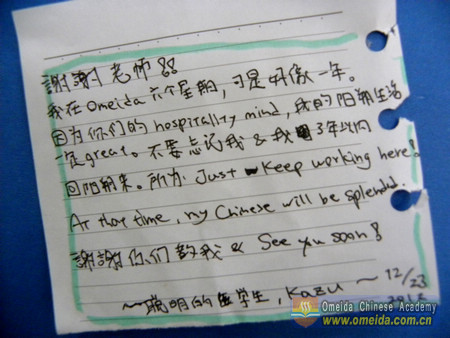 謝謝老师!!
我在Omeida六个星期，可是好像一年。
因为你们的hospitality mind，我的阳朔生活
一定great。不要忘记我&我3年以内
回阳朔来。所为Just Keep working here!
At that time, my Chinese will be splendid.
謝謝你们教我 & See you soon!
~聪明的医学生, Kazu ~ 12/23
Omeida Chinese Academy
www.omeida.com.cn